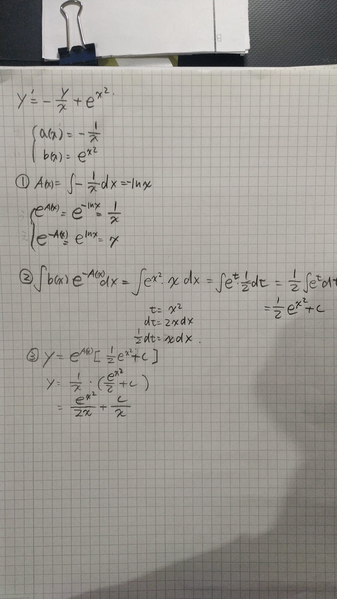 y' = -y/x + e^{x²}.
{ a(x) = -1/x
b(x) = e^{x²}
① A(x) = ∫ -1/x dx = -ln x
{ e^{A(x)} = e^{-ln x} = 1/x
e^{-A(x)} = e^{ln x} = x
② ∫ b(x) e^{-A(x)} dx = ∫ e^{x²} · x dx = ∫ e^t 1/2 dt = 1/2 ∫ e^t dt
= 1/2 e^{x²} + c
t = x²
dt = 2x dx
1/2 dt = x dx .
③ y = e^{A(x)} [ 1/2 e^{x²} + c ]
y = 1/x · ( e^{x²}/2 + c )
= e^{x²}/2x + c/x